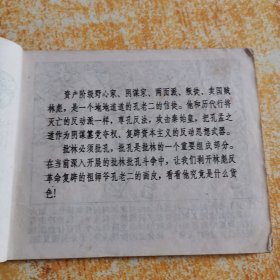 资产阶级野心家、阴谋家、两面派、叛徒、卖国贼
林彪，是一个地地道道的孔老二的信徒。他和历代行将
灭亡的反动派一样，尊孔反法，攻击秦始皇，把孔孟之
道作为阴谋篡党夺权、复辟资本主义的反动思想武器。
批林必须批孔，批孔是批林的一个重要组成部分。
在当前深入开展的批林批孔斗争中，让我们剥开林彪反
革命复辟的祖师爷孔老二的画皮，看看他究竟是什么货
色！